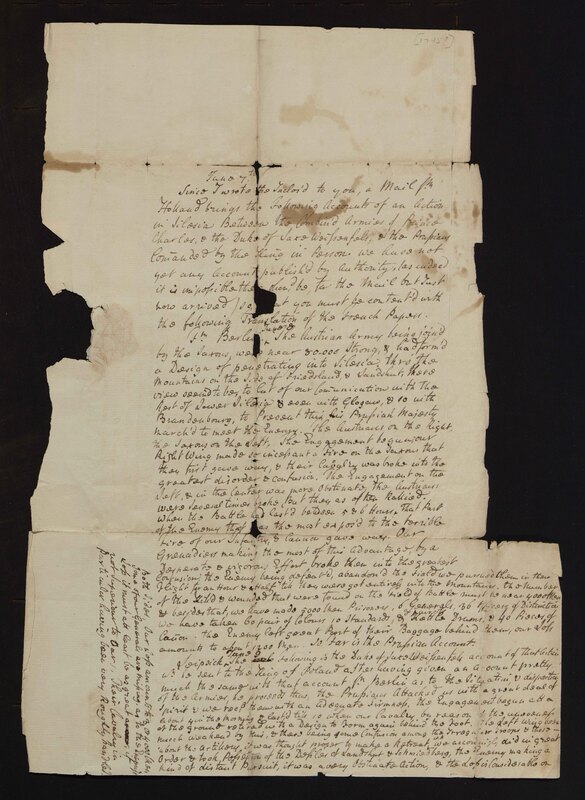 [1745]
June 7th
Since I wrote the Inclos'd to you, a Mail fm
Holland brings the following Accounts of an Action
in Silesia Between the Combind Armies of Prince
Charles, & the Duke of Saxe Weissenfels, & the Prussians
Comanded by the King in Person. We have not
yet any Account publish'd by Authority, nor indeed
it is impossible there shou'd be, for the Mail but Just
now arrived so that you must be content'd with
the following Translation of the French Papers.
fm Berlin June The Austrian Army being joind
by the Saxons, were near 80.000 Strong, & had form'd
a Design of penetrating into Silesia, thro the
Mountains on the Side of Friedland & Landshut, there
view seem'd to be, to cut of our Comunication with the
Rest of Lower Silesia & even with Glogaw, & so with
Brandenbourg, to Prevent this his Prussian Majesty
March'd to meet the Enemy. The Austrians on the Right,
the Saxons on the Left. The Engagement begun our
Right Wing made so incessant a Fire on the Saxons that
they first gave way, & their Cavalry was broke into the
greatest disorder & confusion. The Engagement on the
Left, & in the Center was more obstinate, the Austrians
were several times broke, but they as often Rallied
When the Battle had last'd between 5 & 6 Hours, that Part
of the Enemy that was the most expos'd to the terrible
Fire of our Infantry, & Cannon gave way. Our
Grenadiers making the most of this Advantage, by a
Desperate & vigorous Effort broke them into the greatest
Confusion, the Enemy being defeat'd, abandon'd the Field, we pursued them in their
Flight
of the Kill'd & wounded that were found on the Field of Battle must be near 4000 Men
besides that, we have made 5000 Men Prisoners, 6 Generals, 36 Officers of Distinction
We have taken 60 pair of Colours, 10 Standards, & Kettle Drums, & 40 Pieces of
Canon. The Enemy left great Part of their Baggage behind them, our Loss
amounts to about Men. So far is the Prussian Account.
Leipsick June The following is the Duke of Saxe Weissenfels account of that Action
wch he sent to the King of Poland after having given an account pretty
much the same with that account fm Berlin as to the Situation & disposition
of the Armies, he proceeds thus the Prussians Attack'd us with a great deal of
Spirit & we rec'd them with an Adequate firmness, the Engagement began at
about 4 in the morning & last'd till 10 when our Cavalry, by reason of the uneveness
of the Ground retir'd with a design to form again behind the Foot. The Left was been
much weakend by this, & there being some Confusion among the Irregular Troops & those
about the Artillery, it was thought proper to make a Retreat, we accordingly did in great
Order & took Possession of the Defiles of Landshut & Schmiedberg, the Enemy making a
kind of distant Pursuit, it was a very Obstinate Action, & the Loss is Considerable on
both Sides, that with us amounts to
some of our Generals are missing, as to the Enemy's
Loss, it must at least be as great
not superiour to Ours. Their Cavalry in
particular having been very Roughly handled